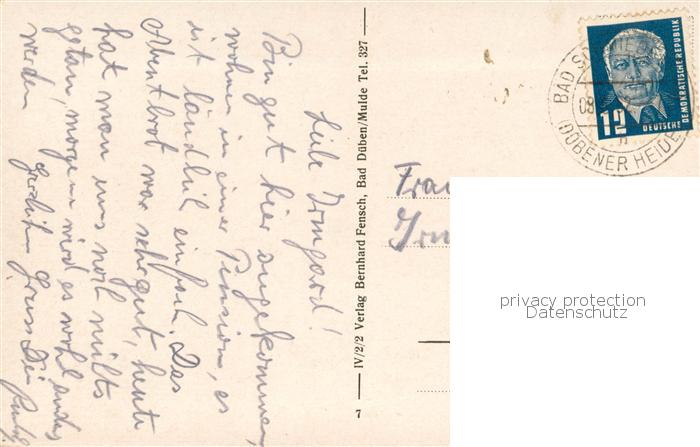 Liebe Irmgard!
Bin gut hier angekommen,
wohnen in einer Pension, es
ist ländlich einfach. Das
Abentbrot war sehr gut, heute
hat man uns noch nichts
getan, morgen wird es wohl anders
werden
Herzlichen Gruss Dein
IV/2/2 Verlag Bernhard Fensch, Bad Düben/Mulde Tel. 327
7
Frau
BAD SCHMIEDE
(DÜBENER HEIDE
08
12
DEUTSCHE
DEMOKRATISCHE REPUBLIK
privacy protection
Datenschutz